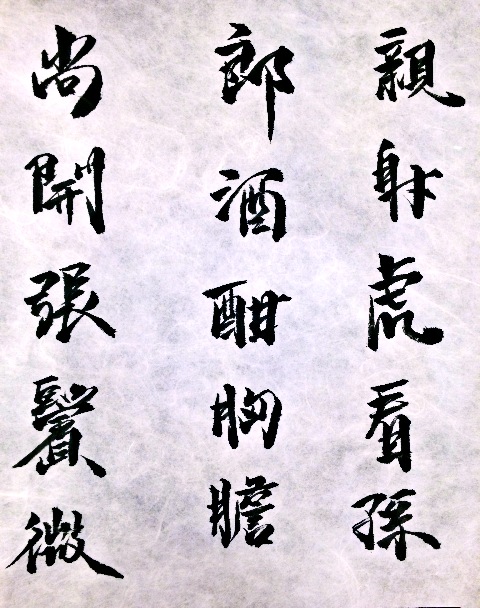 親射虎看孫
郎酒酣胸膽
尚開張鬢微